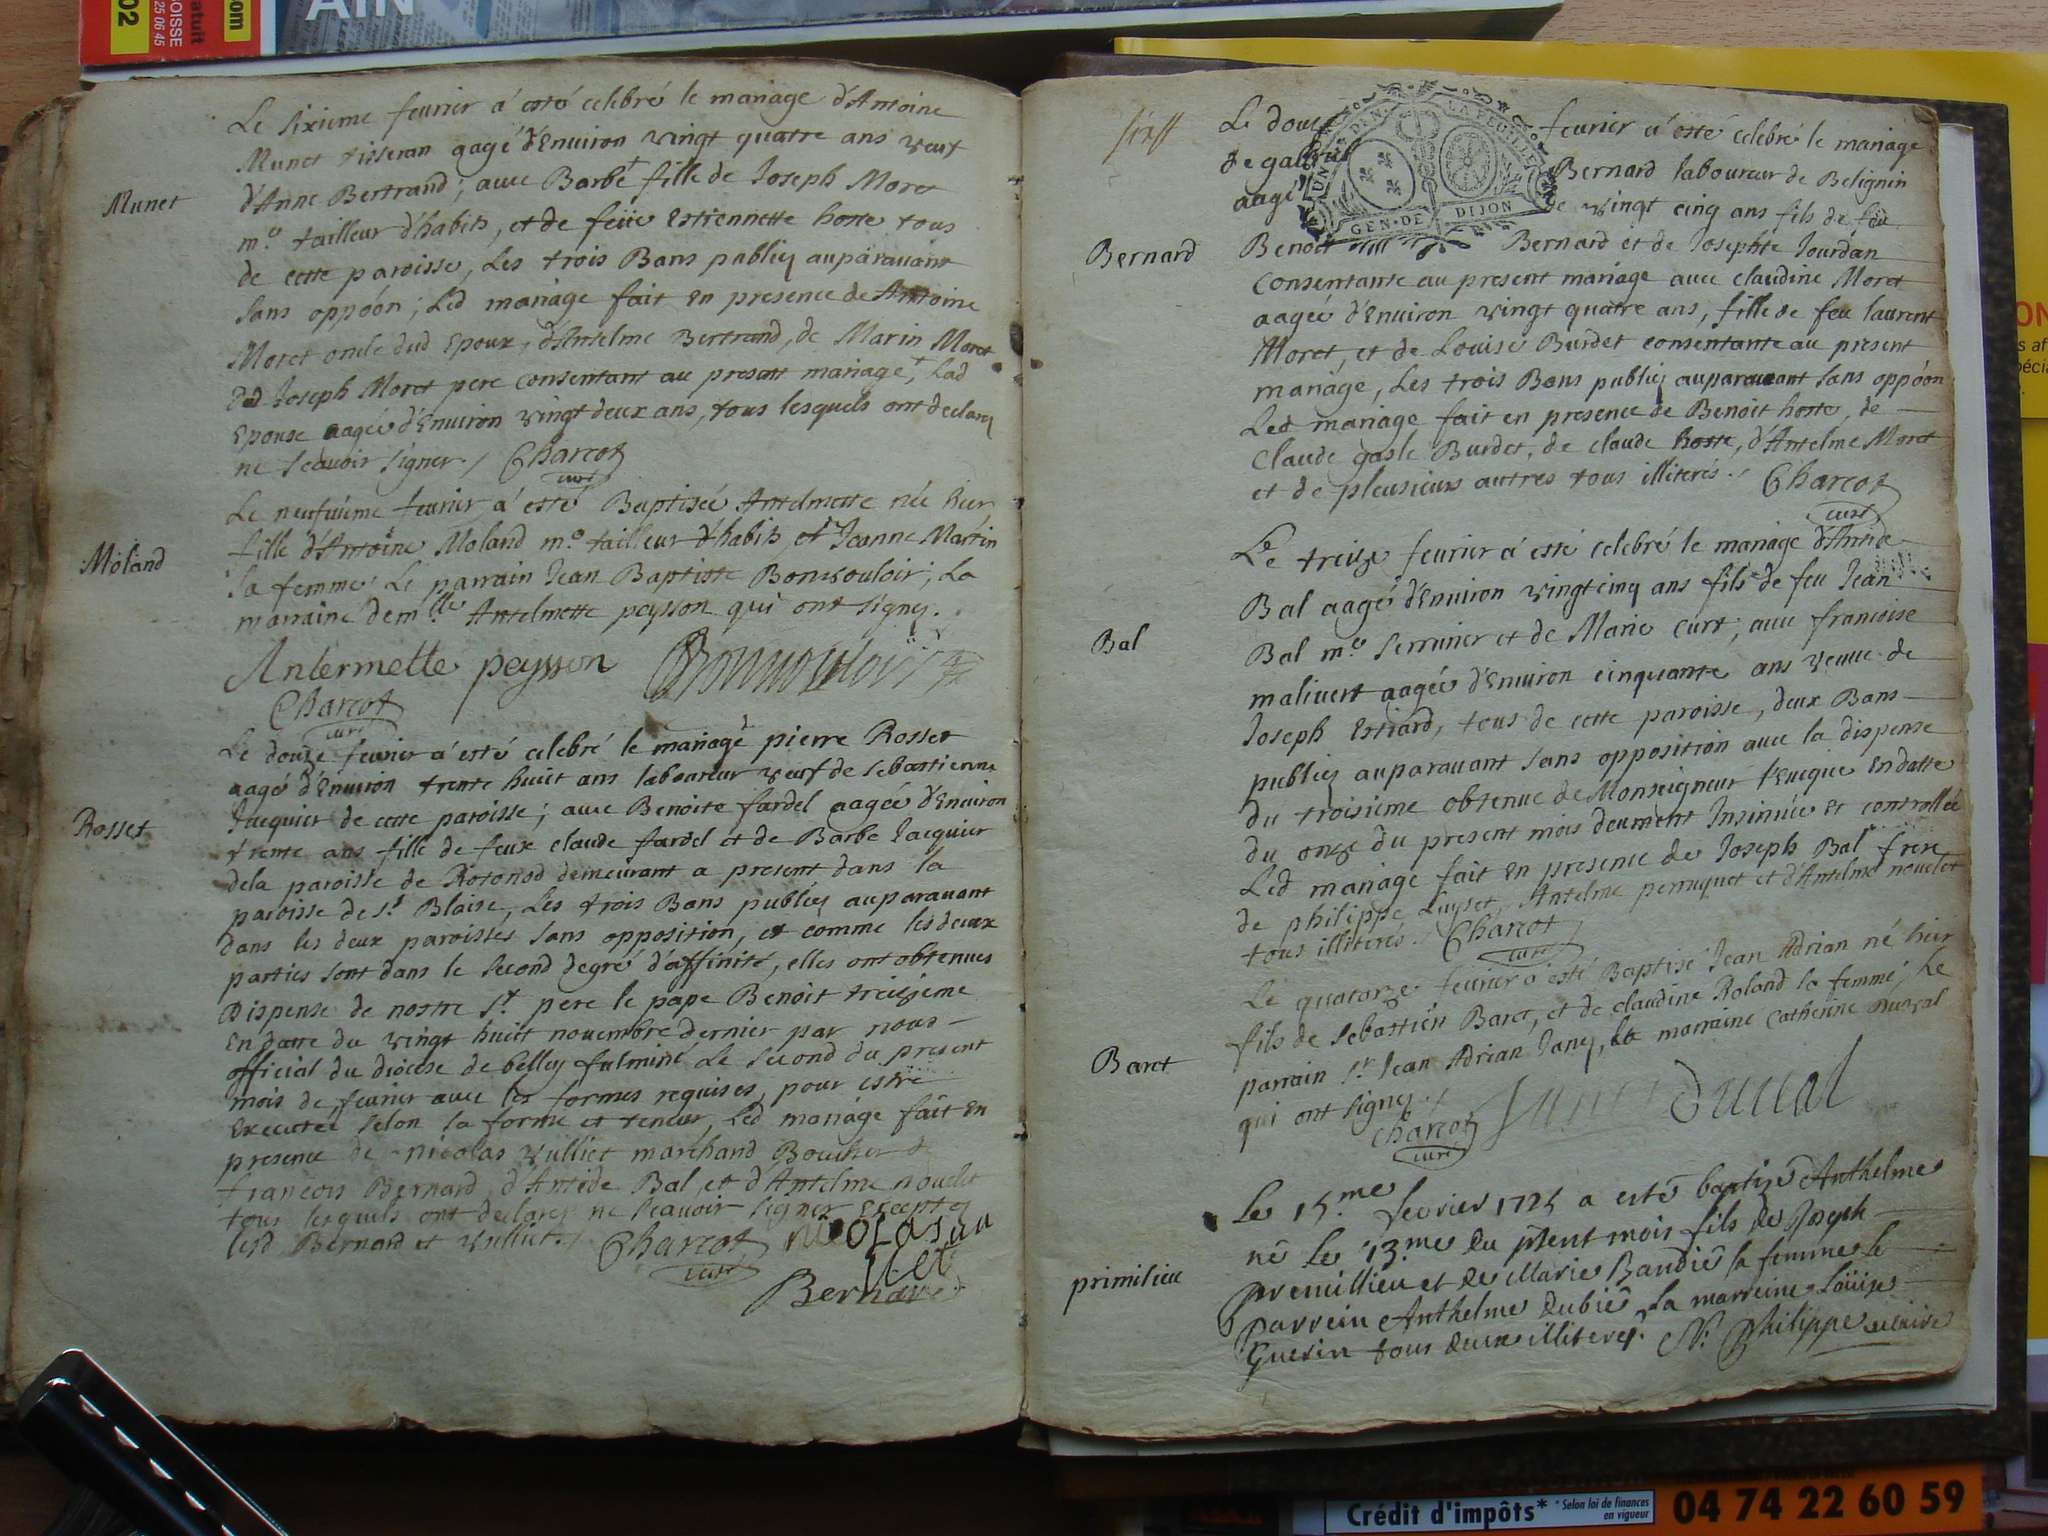 AIN
02
25 06 45
OISSE
ratuit
om
Le sixieme feurier a esté celebré le mariage d'Antoine
Munet tisseran aagé d'Enuiron vingt quatre ans veuf
Munet
d'Anne Bertrand; auec Barbe fille de Joseph Moret
m.e tailleur d'habits, et de feüe Estiennette hoste tous
de cette paroisse, Les trois Bans publiez auparauant
sans oppôon; Led mariage fait en presence de Antoine
Moret oncle dud Epoux, d'Antelme Bertrand, de Marin Moret
Et Joseph Moret pere consentant au present mariage, Lad
Epouse aagée d'Enuiron vingt deux ans, tous lesquels ont declarez
ne scauoir signer./ Charcot
curé
Le neufuieme feurier a esté Baptisée Antelmette née hier
fille d'Antoine Moland m.e tailleur d'habits et Jeanne Martin
Moland
sa femme Le parrain Jean Baptiste Bonvouloir; La
marraine dem.lle Antelmette peysson qui ont signez.
Antermette peysson Bonvouloir
Charcot
curé
Le douze feurier a esté celebré le mariage pierre Rosset
aagé d'Enuiron trente huit ans laboureur veuf de Sebastienne
Jacquier de cette paroisse; auec Benoite fardel aagée d'Enuiron
Rosset
trente ans fille de feux claude fardel et de Barbe Jacquier
dela paroisse de Rotonod demeurant a present dans la
paroisse de S.t Blaise, Les trois Bans publiez auparauant
dans les deux paroisses sans opposition, et comme les deux
parties sont dans le second degré d'affinité, elles ont obtenues
Dispense de nostre S.t pere le pape Benoit treizieme
En datte du vingt huit nouembre dernier par nous
official du diocese de belley fulminé Le second du present
mois de feurier auec les formes requises, pour estre
Executée selon sa forme et teneur, Led mariage fait En
presence de Nicolas vulliet marchand Boucher de
francois Bernard d'Antide Bal et d'Antelme nouelet
tous lesquels ont declarez ne scauoir signer Exceptez
lesd Bernard et vulliet./ Charcot nicolas vu
curé lliet
Bernard
Le douze feurier a esté celebré le mariage
GEN. DE DIJON
de gabriel Bernard laboureur de Belignin
aagé de vingt cinq ans fils de feu
Bernard
Benoit Bernard et de Josephte Jourdan
consentante au present mariage auec claudine Moret
aagée d'Enuiron vingt quatre ans, fille de feu laurent
Moret, et de Louise Burdet consentante au present
mariage, Les trois Bans publiez auparauant sans oppôon
Led mariage fait en presence de Benoit hoste, de
Claude Burdet, de claude hoste, d'Antelme Moret
et de pleusieurs autres tous illiteres./ Charcot
curé
Le treize feurier a esté celebré le mariage d'Antide
Bal aagé d'Enuiron vingt cinq ans fils de feu Jean
Bal
Bal m.e serrurier et de Marie Curt, auec francoise
maliuert aagée d'Enuiron cinquante ans veuue de
Joseph Estiard, tous de cette paroisse, deux Bans
publiez auparauant sans opposition auec la dispense
du troisieme obtenue de Monseigneur l'Eueque En datte
du onze du present mois deument Insinuée et controllée
Led mariage fait En presence de Joseph Bal frere
de philippe Luyset, Antelme perruquet et d'Antelme nouelet
tous illiterés./ Charcot
curé
Le quatorze feurier a esté Baptisé Jean Adrian né hier
fils de Sebastien Baret, et de claudine Roland sa femme, Le
Baret
parrain S.r Jean Adrian Jany, la marraine Catherine Duual
qui ont signez./
Charcot Duual
curé
Le 15.me fevrier 1725 a esté baptisé Anthelme
né le 13.me du pñent mois fils de Joseph
primilieu
premillieu et de Marie Baudié sa femme le
parrein Anthelme Dubié La marreine Loüise
Guerin tous deux illiterez. N. Philippe vicaire
Crédit d'impôts*
* Selon loi de finances
en vigueur
04 74 22 60 59